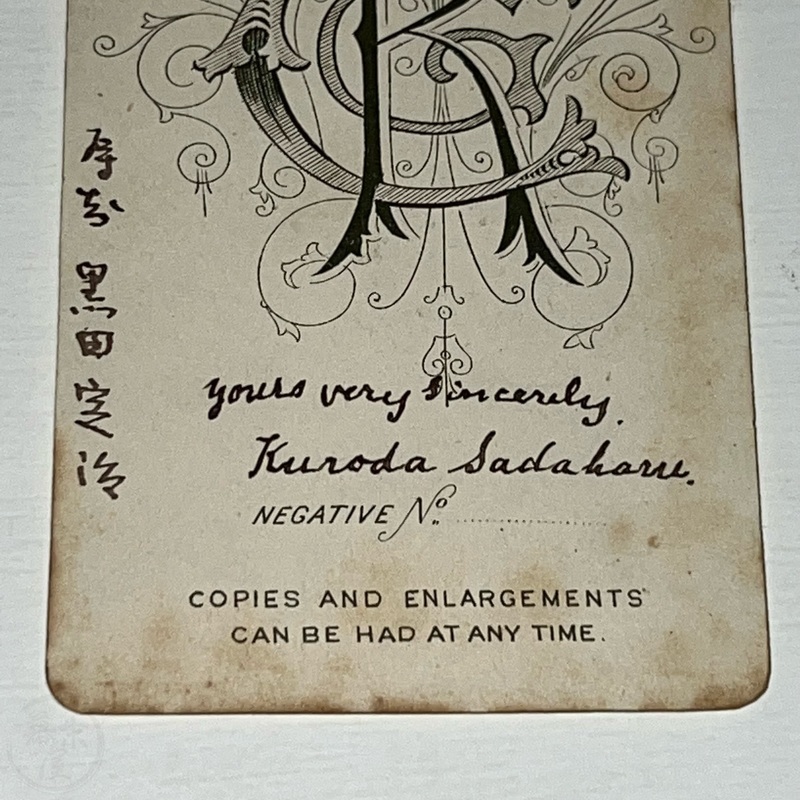 黒田定治
yours very sincerely.
Kuroda Sadaharu.
NEGATIVE Nº
COPIES AND ENLARGEMENTS
CAN BE HAD AT ANY TIME.